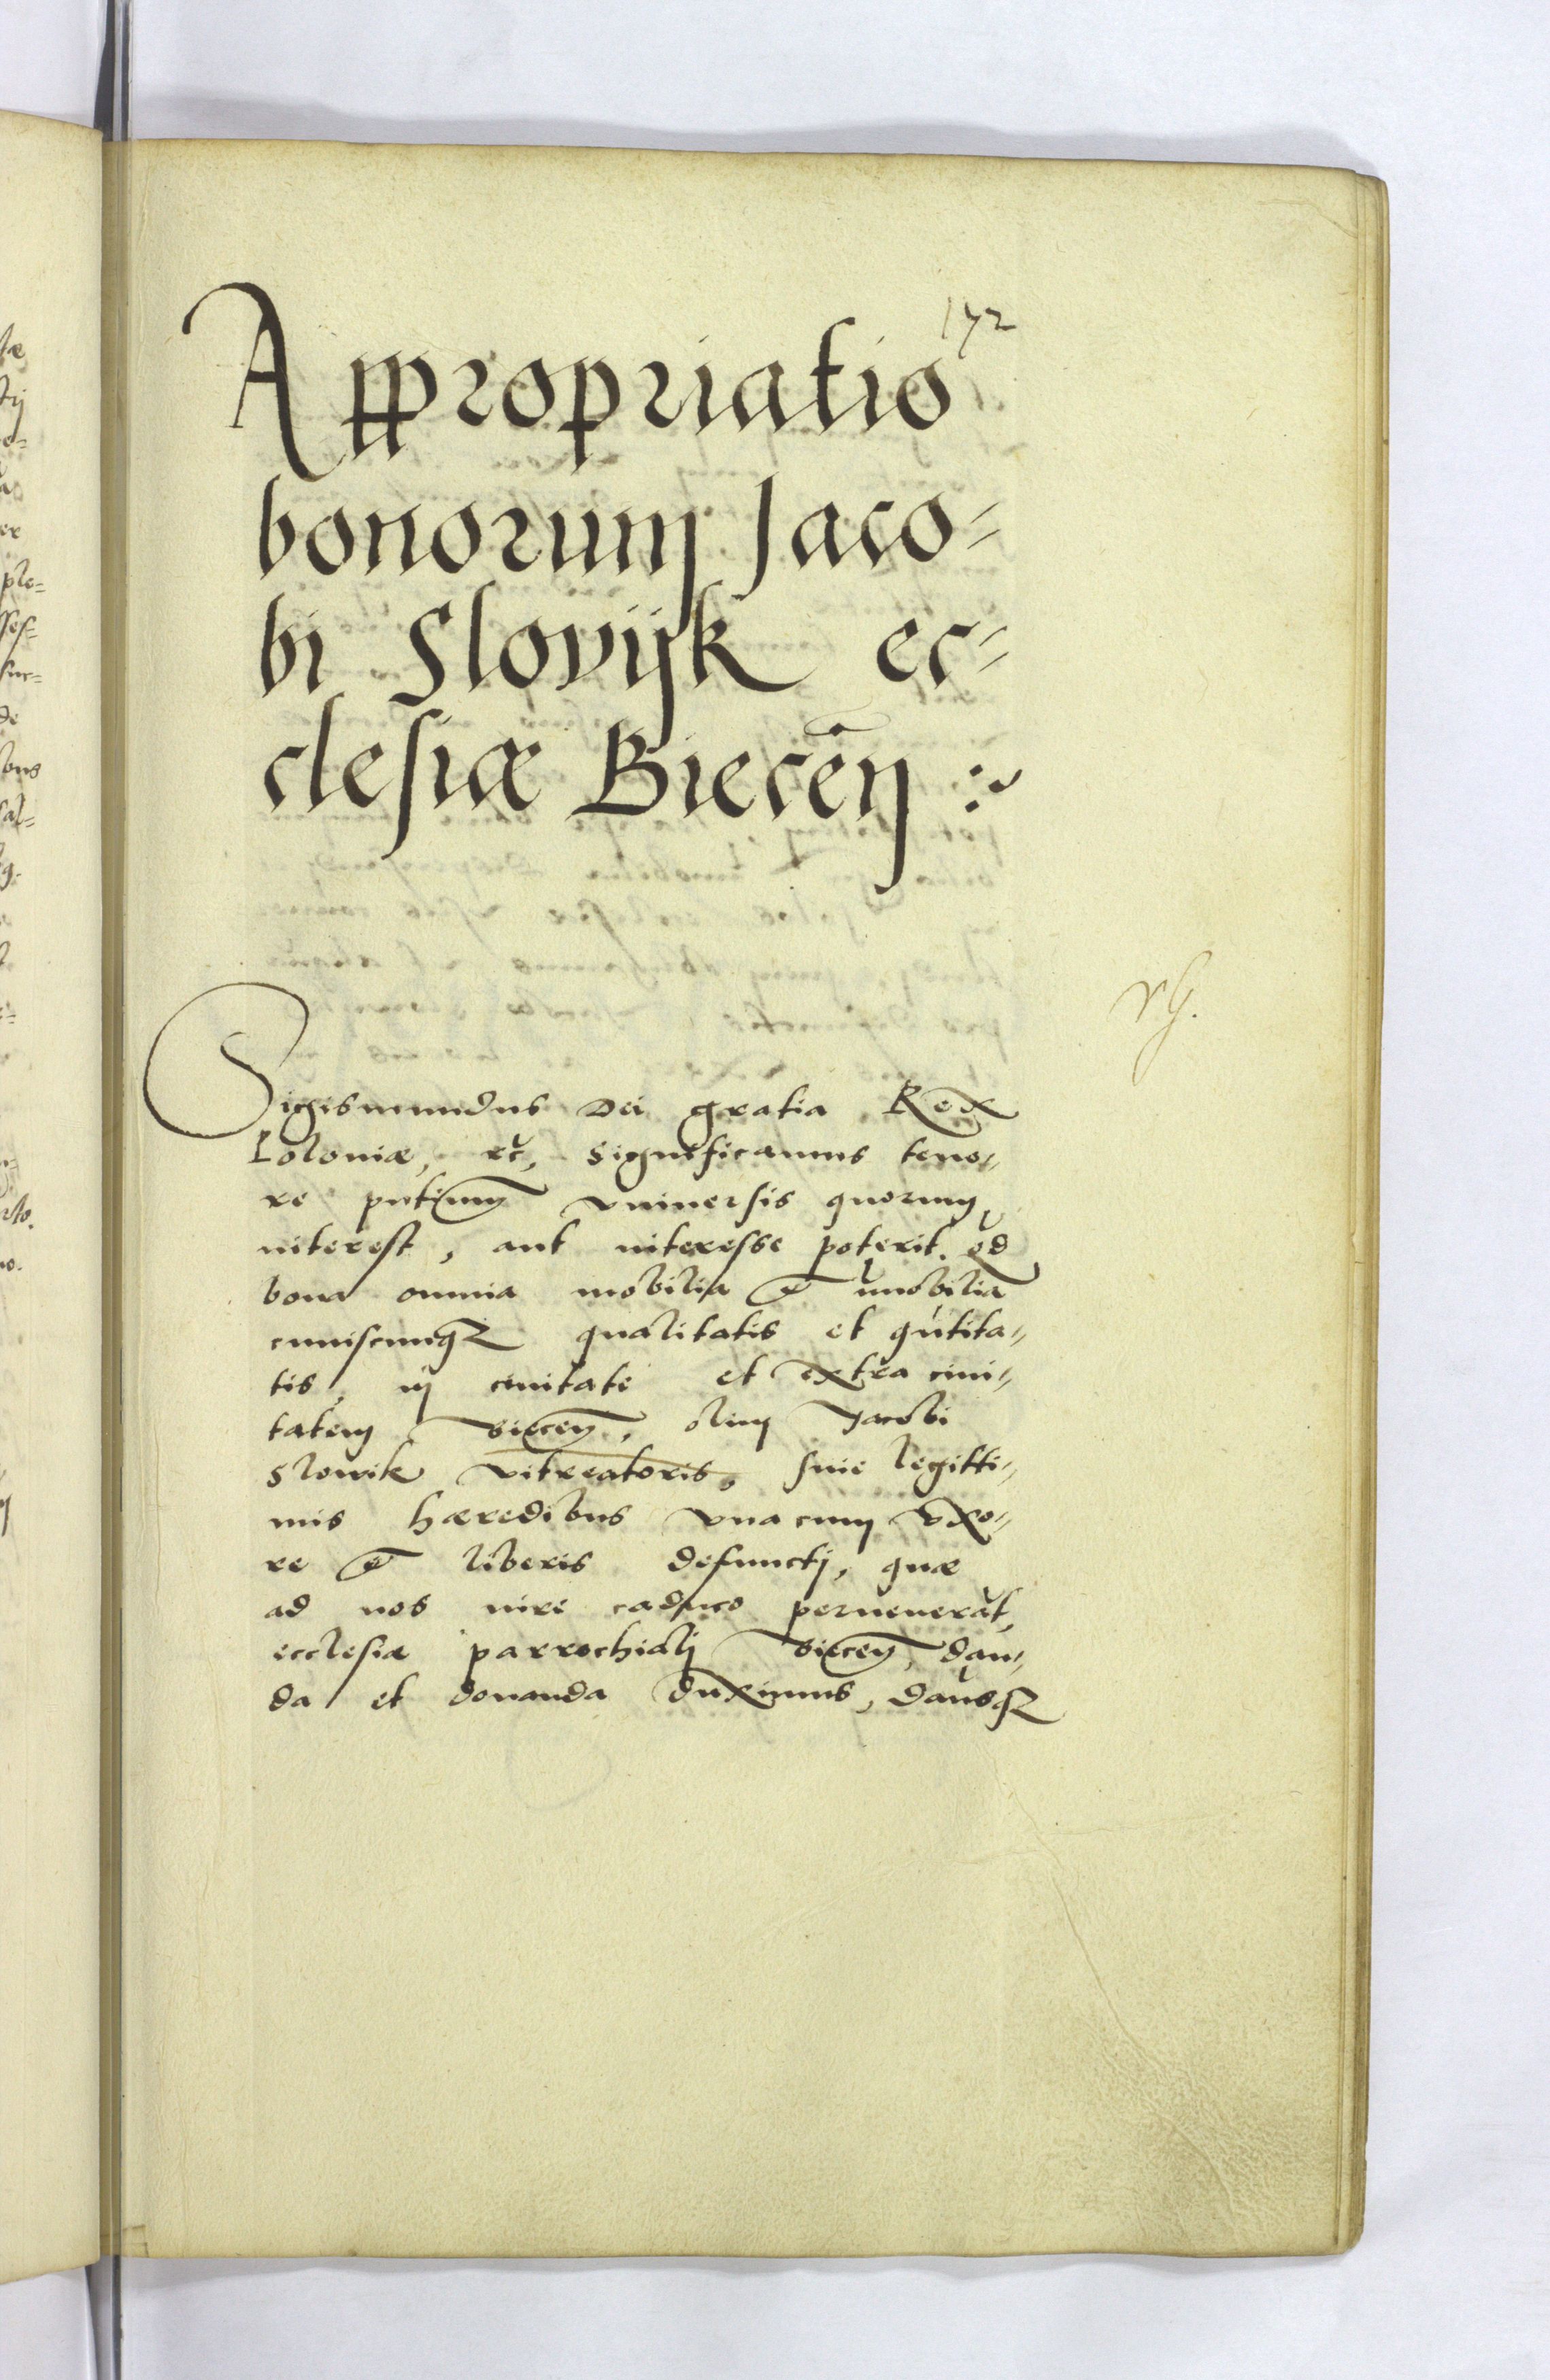 172
Appropriatio
bonorum Jaco=
bi Slovijk ec=
clesiæ Biecen̄ :~
Sigismundus Dei gratia Rex
Poloniæ, etc̃, Significamus teno=
re pñtium vniuersis quorum
interest, aut interesse poterit. Qd
bona omnia mobilia et im̃obilia
cuiuscunqꝫ qualitatis et qũtita=
tis, in ciuitate et extra ciui=
tatem Biecen̄, olim Jacobi
Slowik vitreatoris, sine legitti=
mis hæredibus vna cum vxo=
re et liberis defuncti, quæ
ad nos iure caduco peruenerãt,
ecclesiæ parrochiali Biecen̄, dan=
da et donanda duximus, damusqꝫ